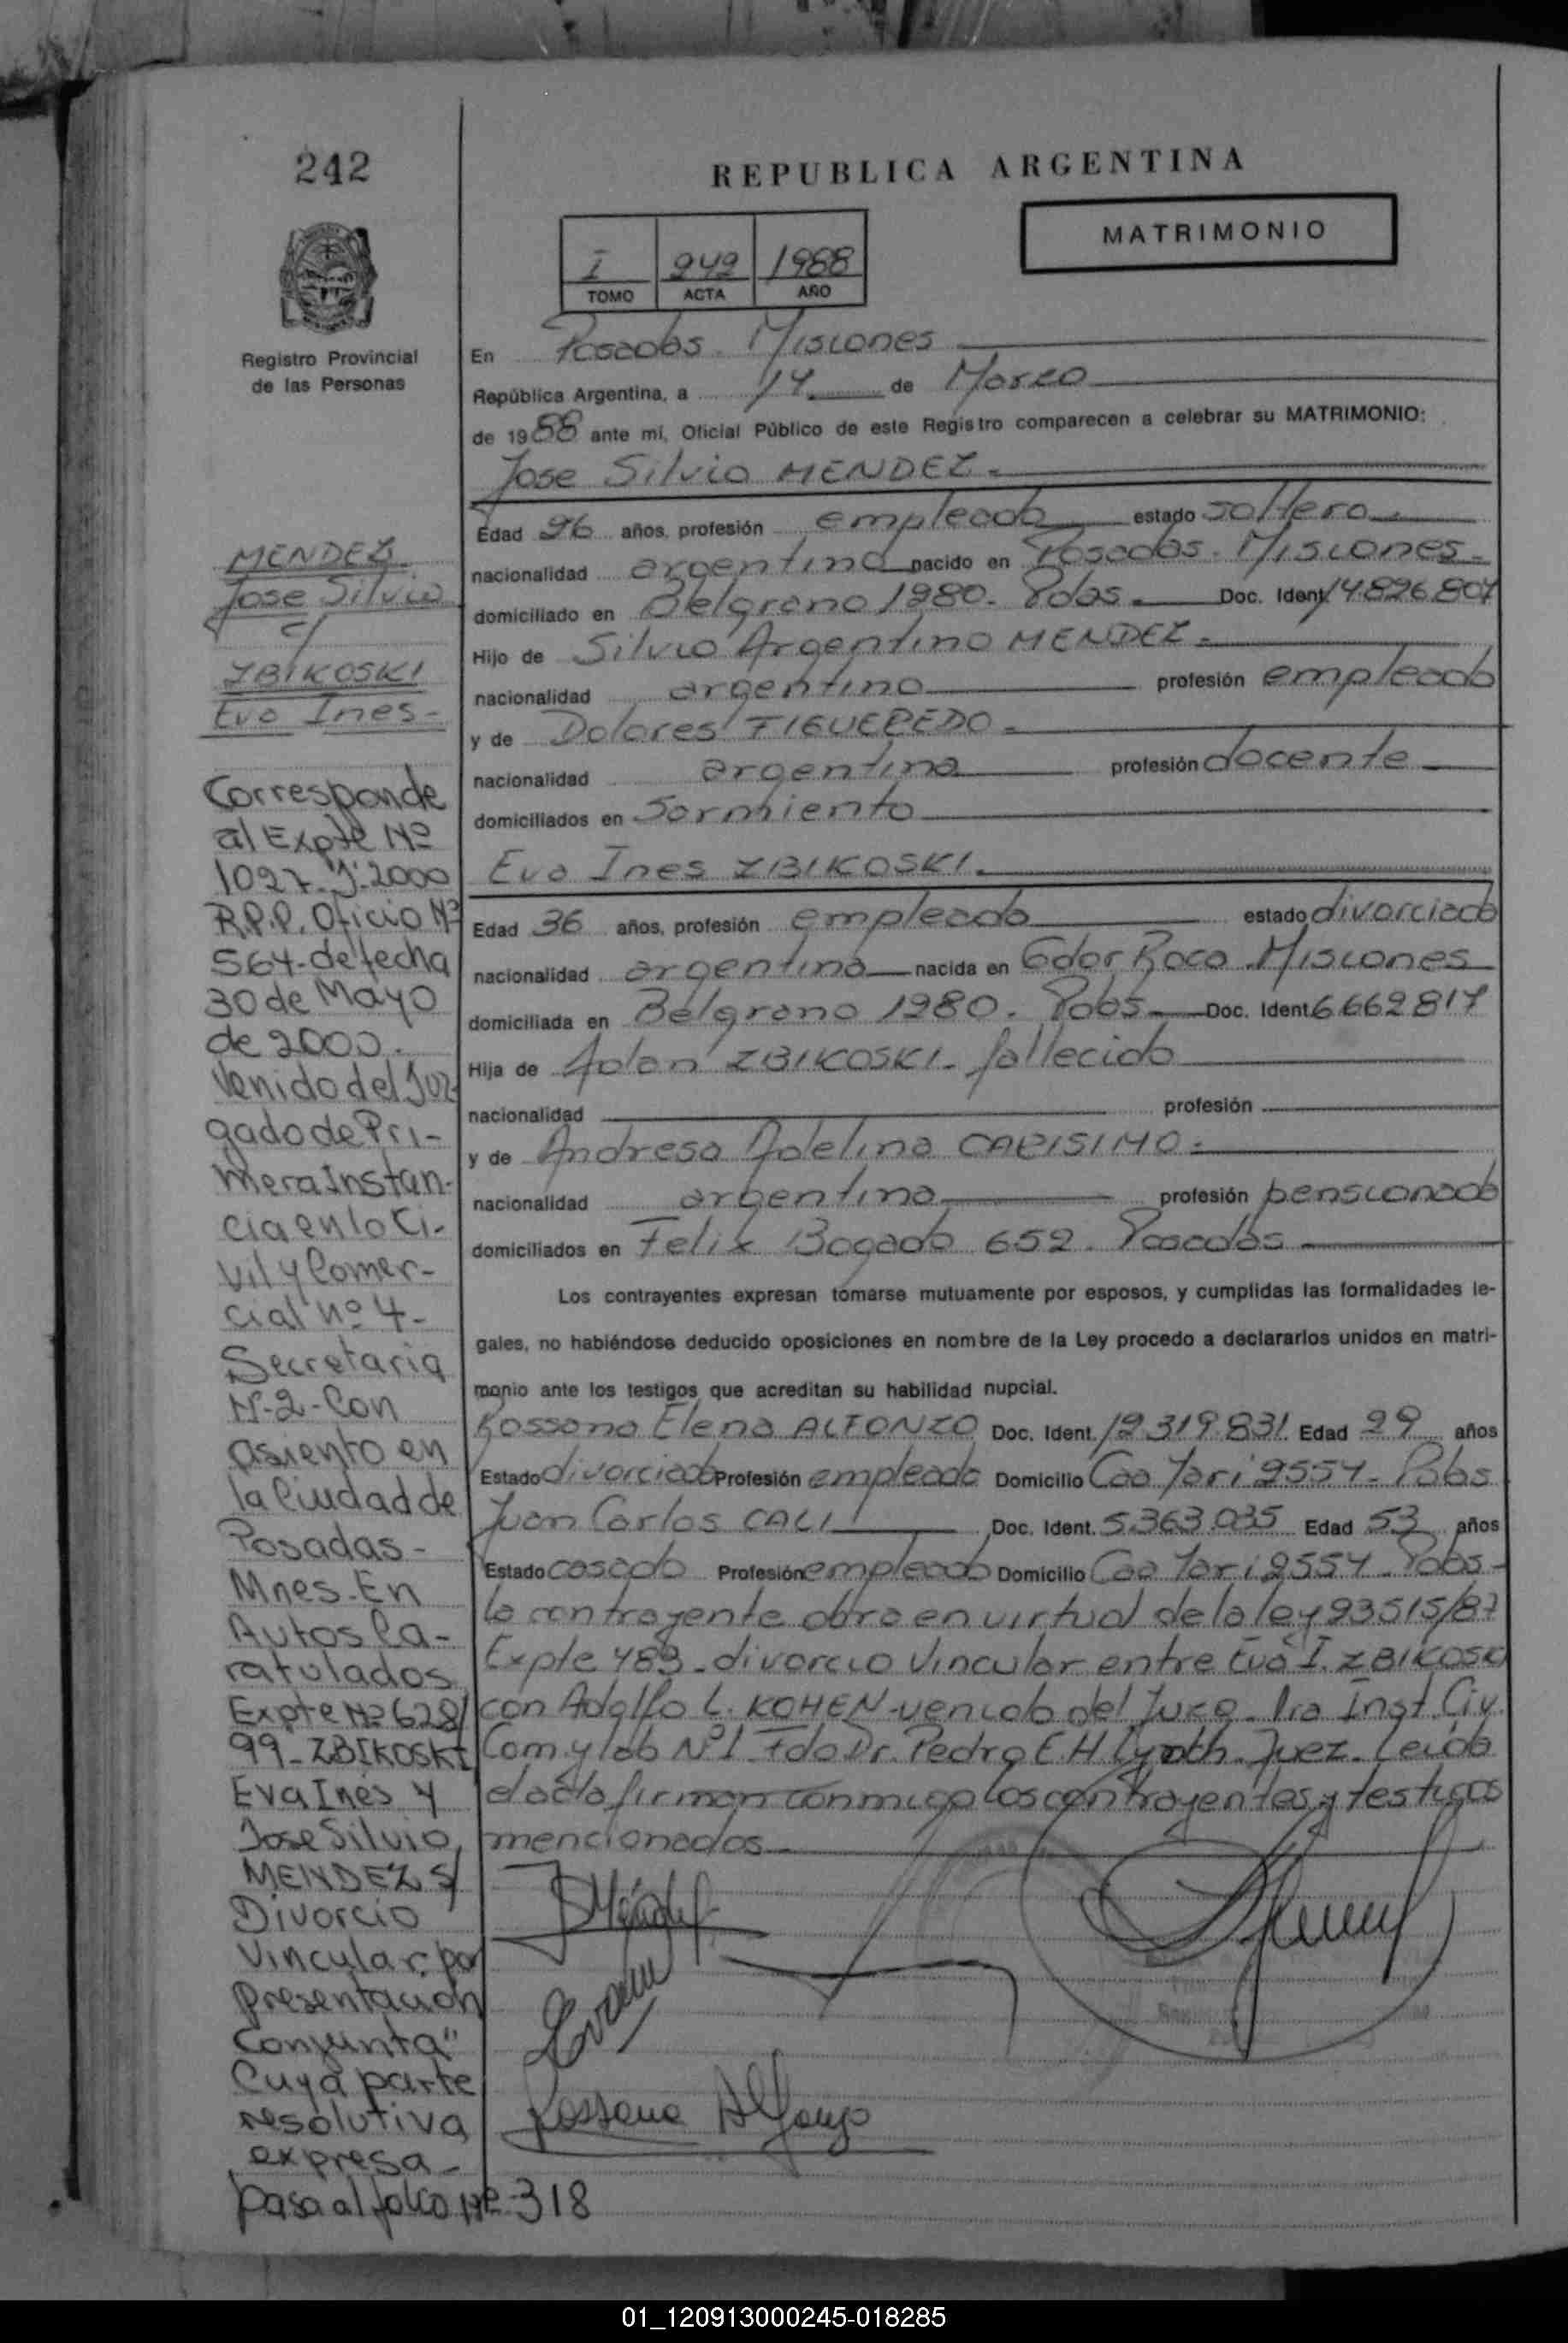 242
REPUBLICA ARGENTINA
MATRIMONIO
I 242 1988
TOMO ACTA AÑO
Registro Provincial
de las Personas
En Posadas. Misiones
República Argentina, a 14 de Marzo
de 1988 ante mi, Oficial Público de este Registro comparecen a celebrar su MATRIMONIO:
Jose Silvio MENDEZ.
Edad 26 años, profesión empleado estado soltero.
nacionalidad argentino nacido en Posadas. Misiones
domiciliado en Belgrano 1980. Pdas. Doc. Ident. 14.826.807
Hijo de Silvio Argentino MENDEZ.
nacionalidad argentino profesión empleado
y de Dolores FIGUEREDO.
nacionalidad argentina profesión docente
domiciliados en Sarmiento
Eva Ines ZBIKOSKI.
Edad 36 años, profesión empleada estado divorciada
nacionalidad argentina nacida en Gdor Roca. Misiones
domiciliada en Belgrano 1980. Pdas. Doc. Ident. 6.662.817
Hija de Adan ZBIKOSKI. fallecido
nacionalidad profesión
y de Andresa Adelina CARISIMO.
nacionalidad argentina profesión pensionada
domiciliados en Felix Bogado 652. Posadas
Los contrayentes expresan tomarse mutuamente por esposos, y cumplidas las formalidades le-
gales, no habiéndose deducido oposiciones en nombre de la Ley procedo a declararlos unidos en matri-
monio ante los testigos que acreditan su habilidad nupcial.
Rossana Elena ALFONZO Doc. Ident. 12.319.831 Edad 29 años
Estado divorciada Profesión empleada Domicilio Caa Yari 2554. Pdas
Juan Carlos CALI Doc. Ident. 5.363.035 Edad 53 años
Estado casado Profesión empleado Domicilio Caa Yari 2554. Pdas-
la contrayente obra en virtud de la ley 23515/87
Expte 483 - divorcio Vincular entre Eva I. ZBIKOSKI
con Adolfo L. KOHEN - venido del Juzg. 1ra Inst. Civ.
Com. y lab Nº1 Fdo Dr. Pedro E.H. Juez. Leida
el acta firman conmigo los contrayentes y testigos
mencionados
Rossana Alfonzo
MENDEZ
Jose Silvio
c/
ZBIKOSKI
Eva Ines-
Corresponde
al Expte Nº
1027-J-2000
R.P.P. Oficio Nº
564-de fecha
30 de Mayo
de 2000.
Venido del Juz-
gado de Pri-
mera Instan-
cia en lo Ci-
vil y Comer-
cial nº 4-
Secretaria
Nº-2-Con
asiento en
la Ciudad de
Posadas-
Mnes. En
Autos Ca-
ratulados
Expte Nº 628/
99-ZBIKOSKI
Eva Inés y
Jose Silvio
MENDEZ S/
Divorcio
Vincular por
Presentación
Conjunta"
Cuya parte
resolutiva
expresa-
pasa al folio Nº-318
01_120913000245-018285